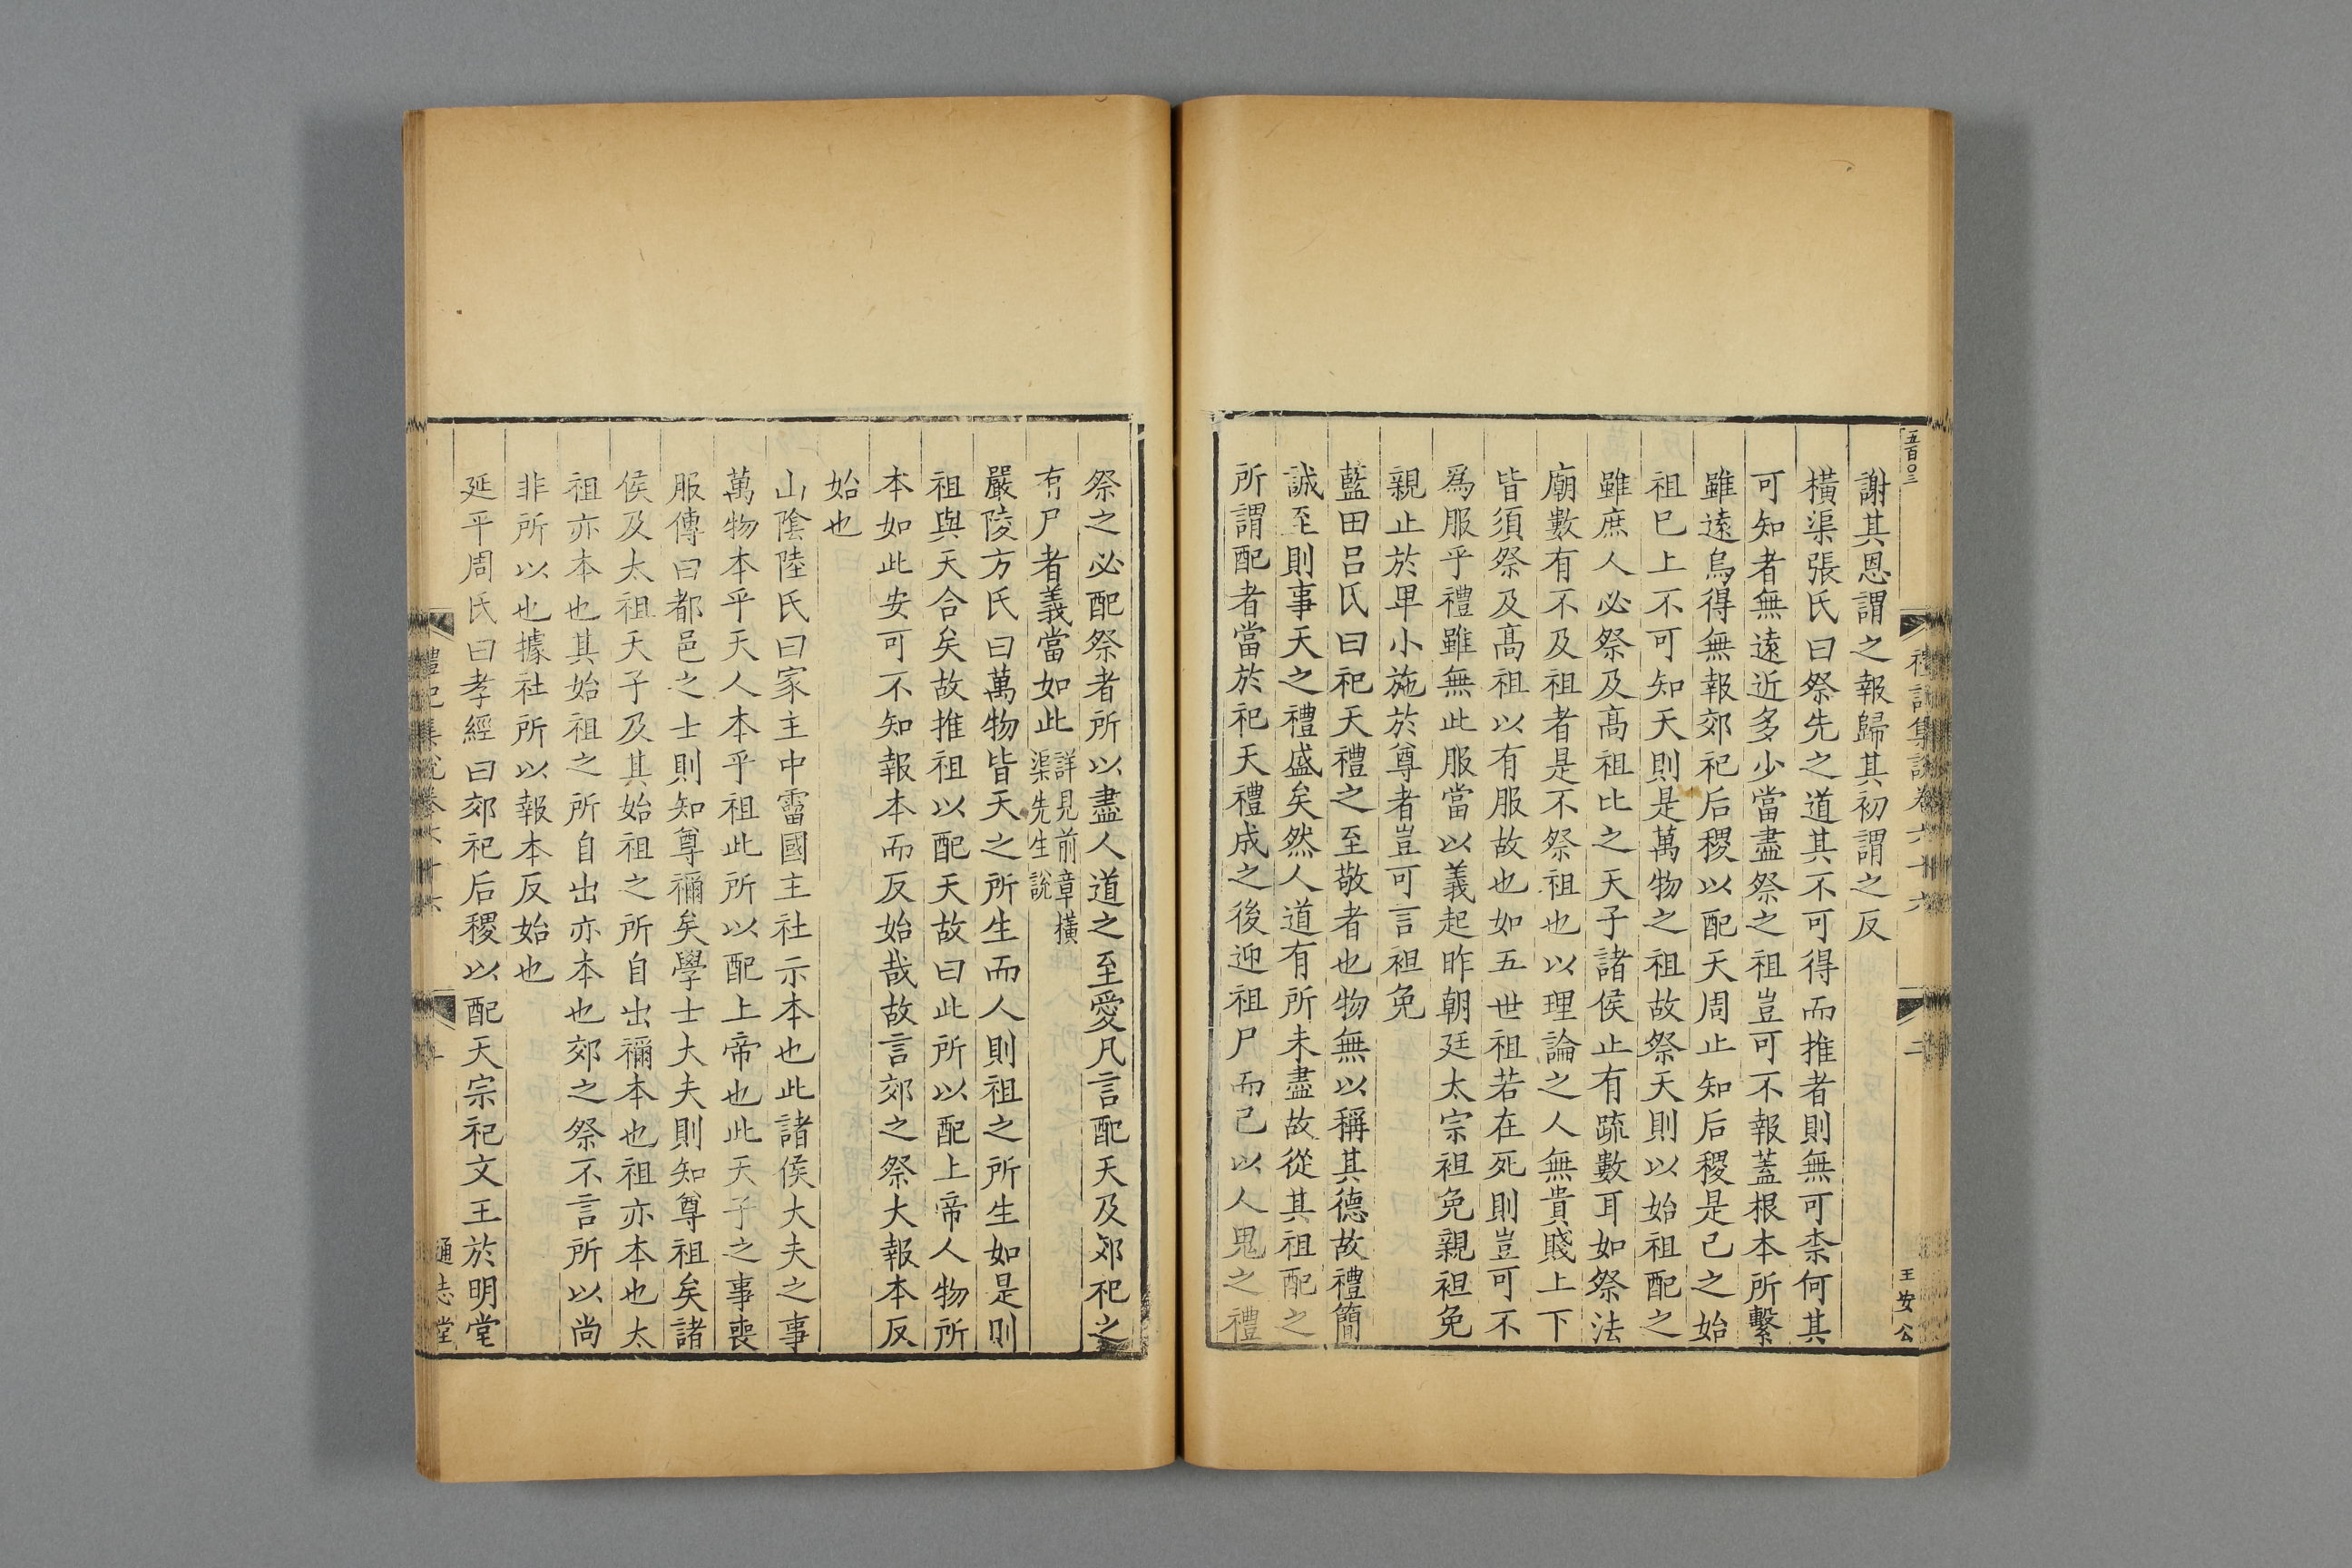 五百〇三
禮記集說卷六十六
二
王安公
謝其恩謂之報歸其初謂之反
橫渠張氏曰祭先之道其不可得而推者則無可柰何其
可知者無遠近多少當盡祭之祖豈可不報蓋根本所繫
雖遠烏得無報郊祀后稷以配天周止知后稷是己之始
祖已上不可知天則是萬物之祖故祭天則以始祖配之
雖庶人必祭及高祖比之天子諸侯止有疏數耳如祭法
廟數有不及祖者是不祭祖也以理論之人無貴賤上下
皆須祭及高祖以有服故也如五世祖若在死則豈可不
爲服乎禮雖無此服當以義起昨朝廷太宗袒免親袒免
親止於卑小施於尊者豈可言袒免
藍田呂氏曰祀天禮之至敬者也物無以稱其德故禮簡
誠至則事天之禮盛矣然人道有所未盡故從其祖配之
所謂配者當於祀天禮成之後迎祖尸而已以人鬼之禮
祭之必配祭者所以盡人道之至愛凡言配天及郊祀之
有尸者義當如此詳見前章橫渠先生說
嚴陵方氏曰萬物皆天之所生而人則祖之所生如是則
祖與天合矣故推祖以配天故曰此所以配上帝人物所
本如此安可不知報本而反始哉故言郊之祭大報本反
始也
山陰陸氏曰家主中霤國主社示本也此諸侯大夫之事
萬物本乎天人本乎祖此所以配上帝也此天子之事喪
服傳曰都邑之士則知尊禰矣學士大夫則知尊祖矣諸
侯及太祖天子及其始祖之所自出禰本也祖亦本也太
祖亦本也其始祖之所自出亦本也郊之祭不言所以尚
非所以也據社所以報本反始也
延平周氏曰孝經曰郊祀后稷以配天宗祀文王於明堂
禮記集說卷六十六
通志堂